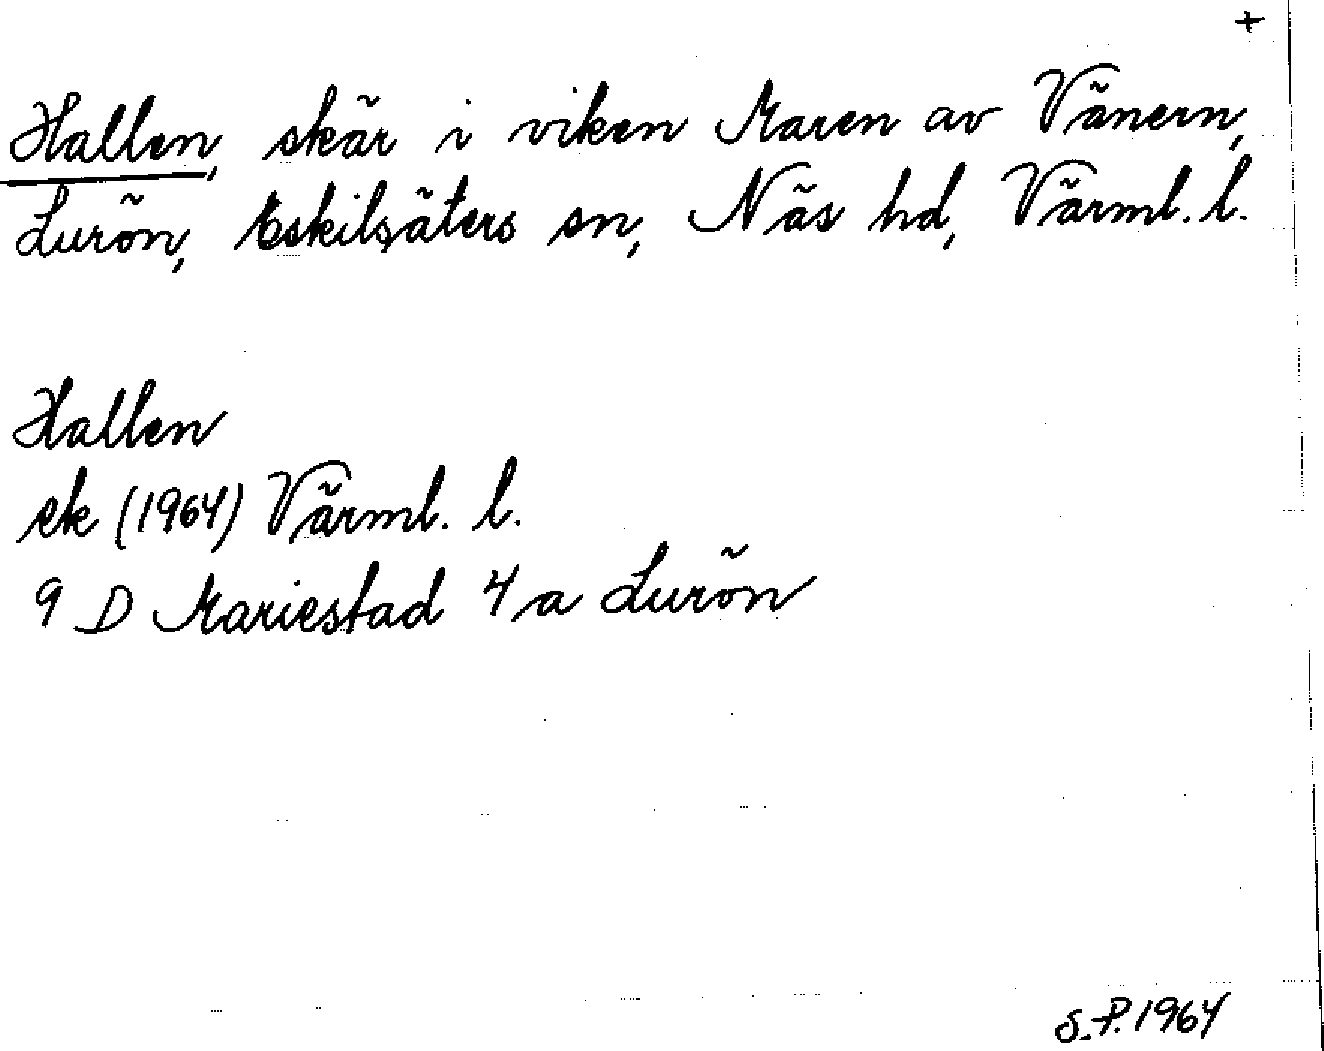 +
Hallen, skär i viken Maren av Vänern,
Lurön, Eskilsäters sn, Näs hd, Värml. l.
Hallen
ek (1964) Värml. l.
9 D Mariestad 4 a Lurön
S.P. 1964